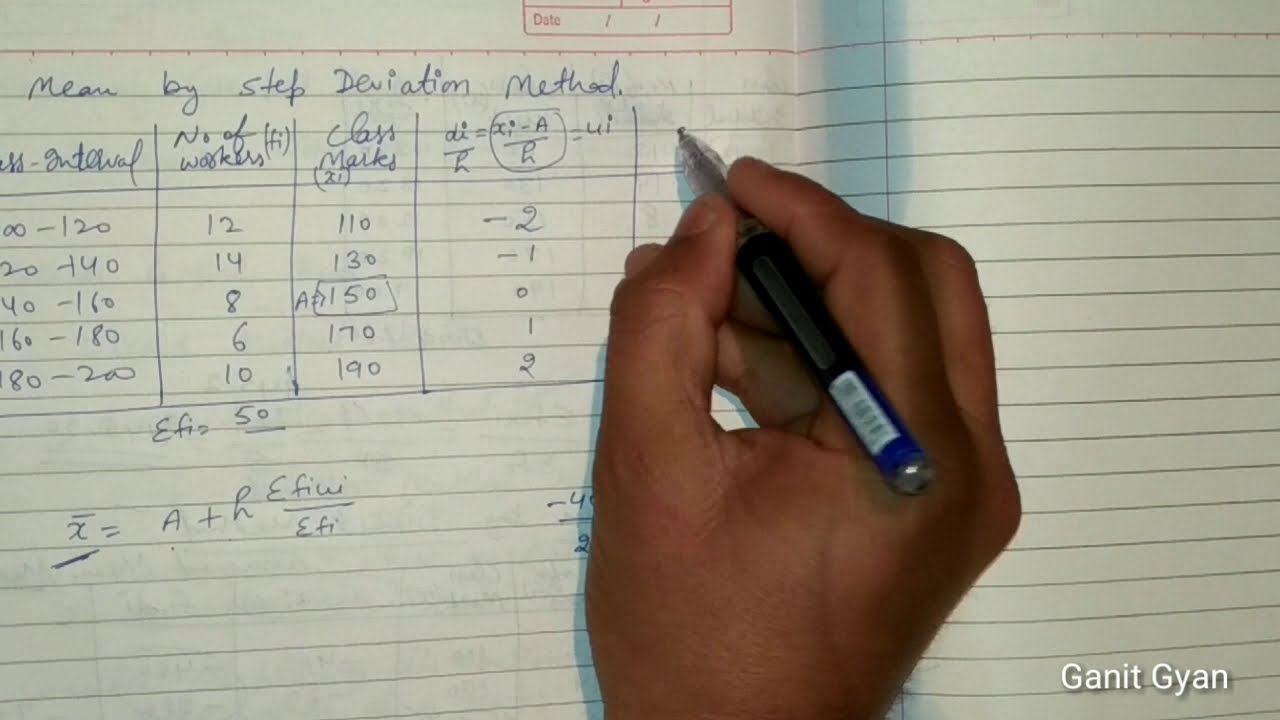 Date / /
Mean by step Deviation Method.
ass-Interval No of workers (fi) Class Marks (xi) di/h = xi-A/h = ui
00-120 12 110 -2
20-140 14 130 -1
40-160 8 A= 150 0
160-180 6 170 1
180-200 10 190 2
Σfi= 50
x̄ = A + h Σfiui/Σfi
-40
2
Ganit Gyan